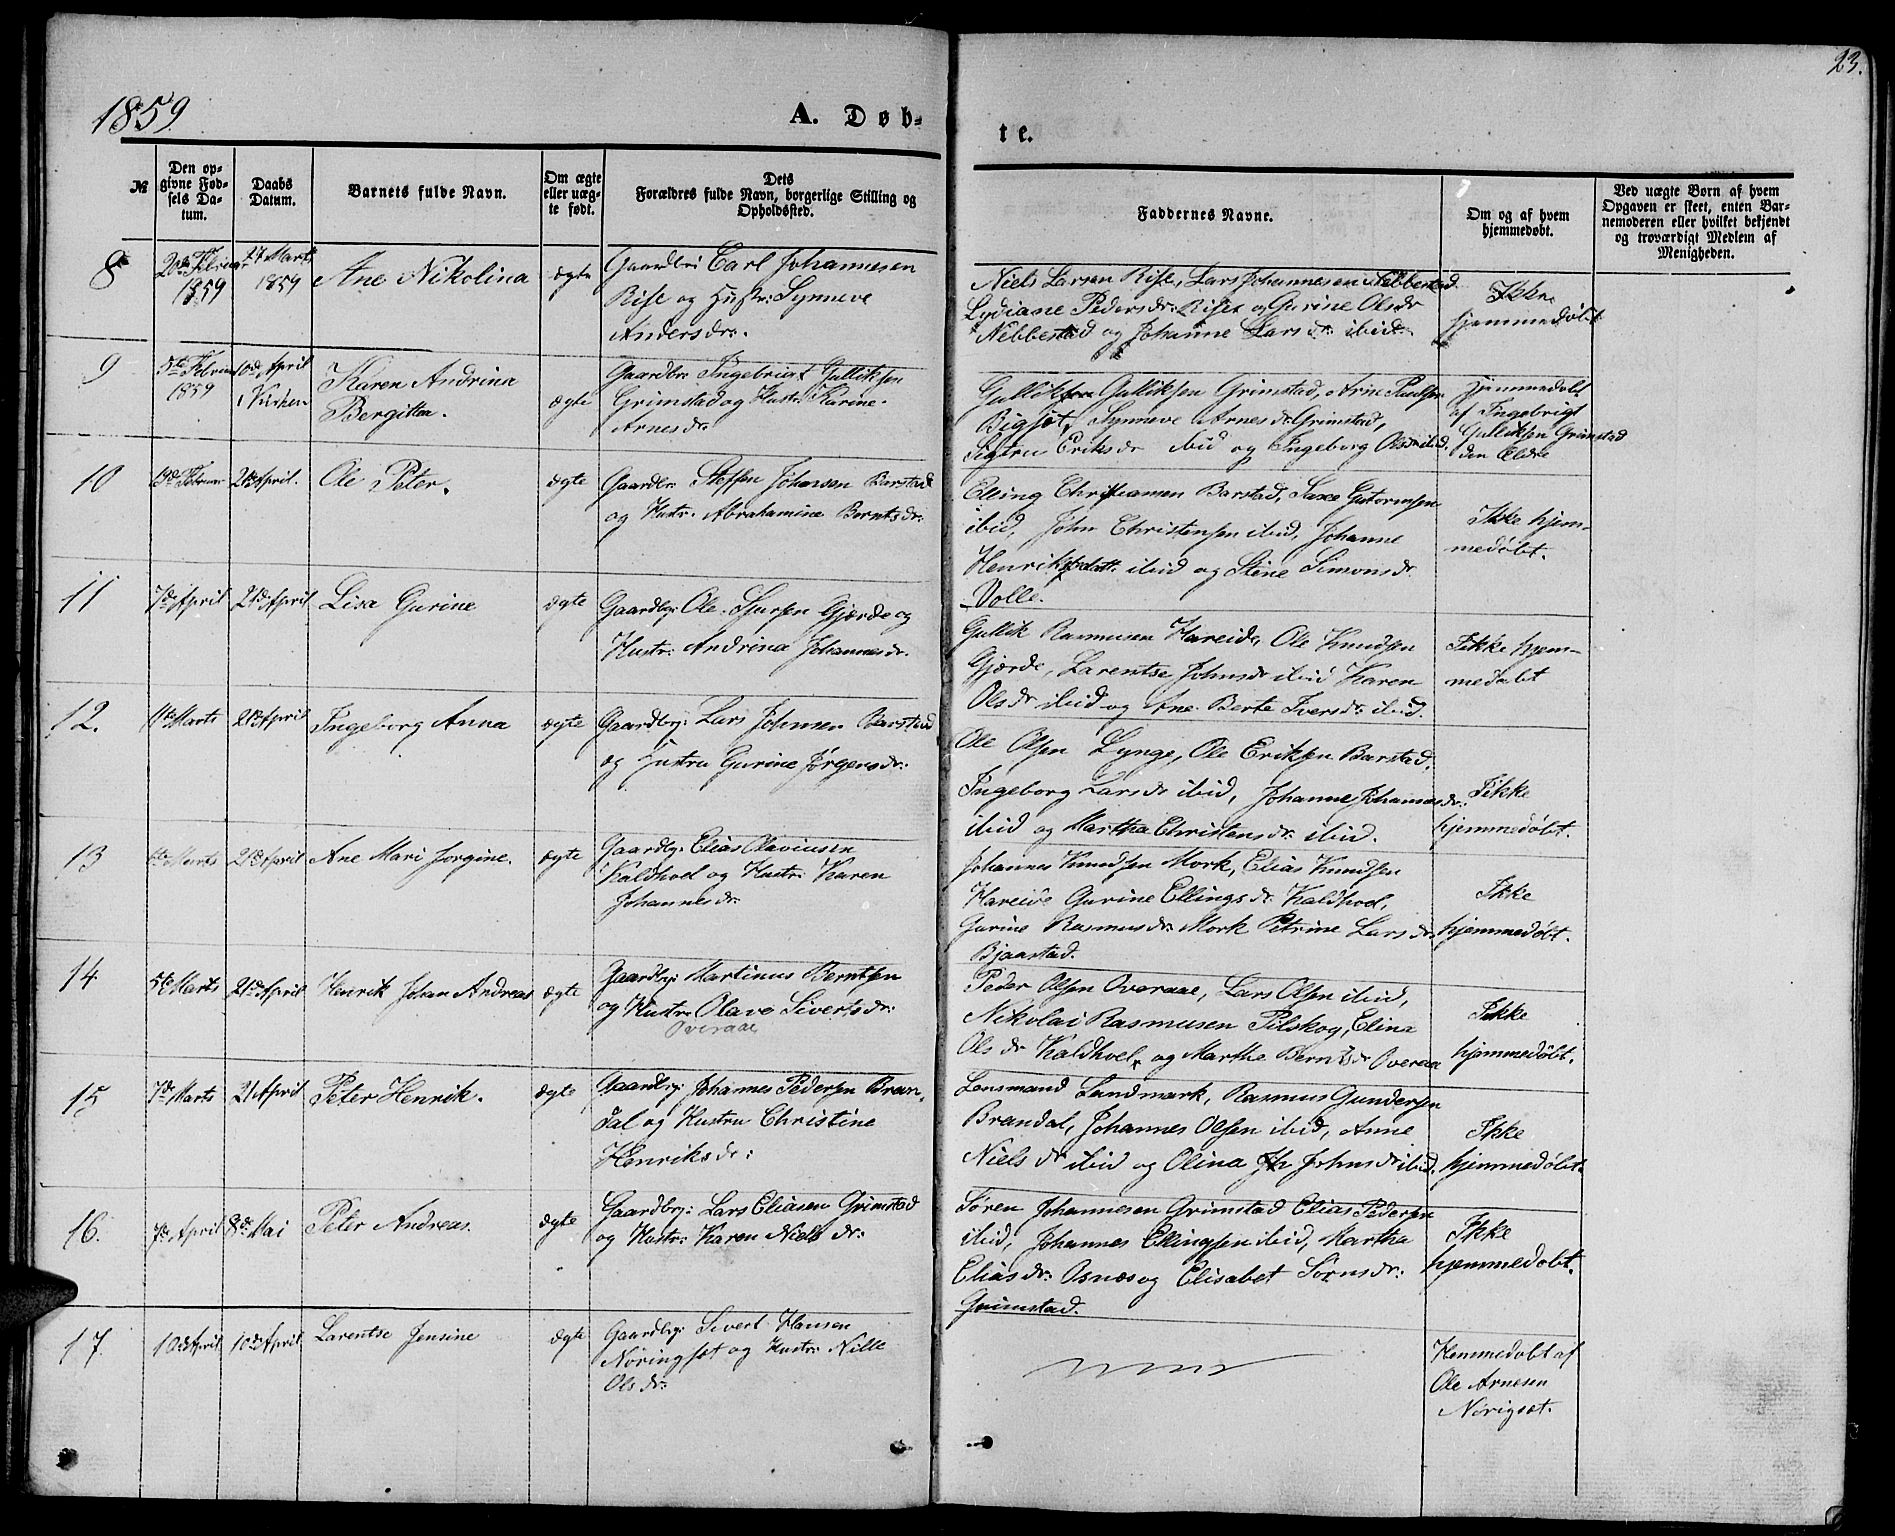 1859
A. Døb-
te.
23.
№
Den op-
givne Fød-
sels Da-
tum.
Daabs
Datum.
Barnets fulde Navn.
Om ægte
eller uæg-
te født.
Dets
Forældres fulde Navn, borgerlige Stilling og
Opholdssted.
Faddernes Navne.
Om og af hvem
hjemmedøbt.
Ved uægte Børn af hvem
Opgaven er skeet, enten Bar-
nemoderen eller hvilket bekjendt
og troværdigt Medlem af
Menigheden.
8
20de Februar
1859
27 Marts
1859
Ane Nikolina
ægte
Gaardbr: Carl Johannesen
Rise og Hustr: Synneve
Andersdr.
Niels Larsen Rise, Lars Johannesen Nebbestad
Lydiane Pedersdr: Riset og Gurine Olsdr
Nebbestad og Johanne Larsdr: ibid.
Ikke
hjemmedøbt
9
5te Februar
1859
10de April
Kirken
Karen Andrina
Bergitta.
ægte
Gaardbr: Ingebrigt Gulliksen
Grimstad og Hustr: Karine
Arnesdr.
Gullik Gulliksen Grimstad, Arne Paulsen
Bigset, Synneve Arnesdr. Grimstad,
Eriksdr ibid og Ingeborg Olsdr ibid.
Hjemmedøbt
af Ingebrigt
Gulliksen Grimstad
den Ældre
10
19de Februar
21de April.
Ole Peter.
ægte
Gaardbr. Steffen Johnsen Barstad
og Hustr. Abrahamine Berntsdr.
Elling Christiansen Barstad, Saxe Gutormsen
ibid, John Christensen ibid, Johanne
Henriksdatt. ibid og Stine Simonsdr.
Volle.
Ikke hjem-
medøbt.
11
7de April
21de April
Lisa Gurine
ægte
Gaardbr: Ole Sjursen Gjærde og
Hustr: Andrina Johannesdr.
Gullik Rasmusen Hareide, Ole Knudsen
Gjerde, Larentse Johnsdr ibid Karen
Olsdr ibid og Ane Berte Iversdr: ibid.
Ikke hjem-
medøbt
12.
1ste Marts
21de April
Ingeborg Anna
ægte
Gaardbr: Lars Johnsen Barstad
og Hustru Gurine Jørgensdr:
Ole Olsen Lynge, Ole Eriksen Barstad,
Ingeborg Larsdr ibid, Johanne Johannesdr:
ibid og Martha Christensdr. ibid.
Ikke
hjemmedøbt.
13
Marts
21de April
Ane Mari Jorgine.
ægte
Gaardbr: Elias Olaviusen
Kaldhol og Hustr: Karen
Johannesdr.
Johannes Knudsen Mork, Elias Knudsen
Hareide Gurine Ellingsdr. Kaldhol,
Gurine Rasmusdr. Mork Petrine Larsdr.
Bjaastad.
Ikke
hjemmedøbt.
14
5te Marts
21de April
Henrik Johan Andreas
ægte
Gaardbr: Martinus Berntsen
og Hustr. Olave Sivertsdr:
Overaae
Peder Olsen Overaae, Lars Olsen ibid,
Nikolai Rasmusen Pilskog, Elina
Olsdr Kaldhol, og Marthe Berntsdr Overaae
Ikke
hjemmedøbt.
15
7de Marts
21 April
Peter Henrik.
ægte
Gaardbr: Johannes Pedersen Bran-
dal og Hustru Christine
Henriksdr:
Lensmand Landmark, Rasmus Gundersen
Brandal, Johannes Olsen ibid, Anne
Nielsdr ibid og Olina Johnsdr ibid.
Ikke
hjemmedøbt.
16.
7de April
8de Mai
Peter Andreas.
ægte
Gaardbr: Lars Eliasen Grimstad
og Hustr: Karen Nielsdr:
Søren Johannesen Grimstad Elias Pedersen
ibid, Johannes Ellingsen ibid, Martha
Eliasdr: Osnæs og Elisabet Sørnsdr:
Grimstad.
Ikke
hjemmedøbt.
17.
10de April
10de April
Larentse Jensine
ægte
Gaardbr: Sivert Hansen
Nøringset og Hustr: Nille
Olsdr.
Hemmedøbt af
Ole Arnesen
Nørigset.